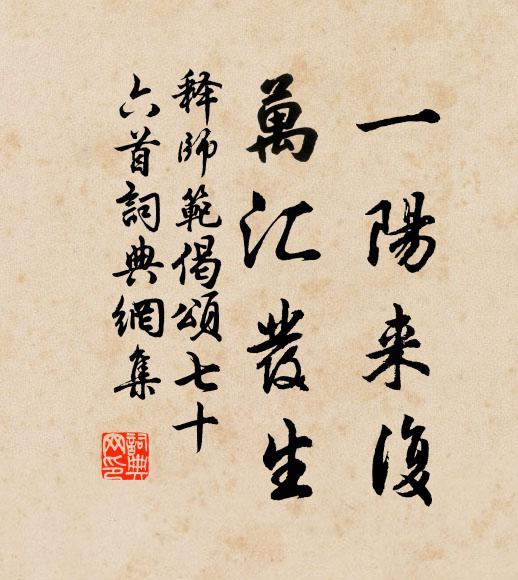 一陽来復
萬汇發生
释師範偈頌七十
六首詞典網集
詞典网印